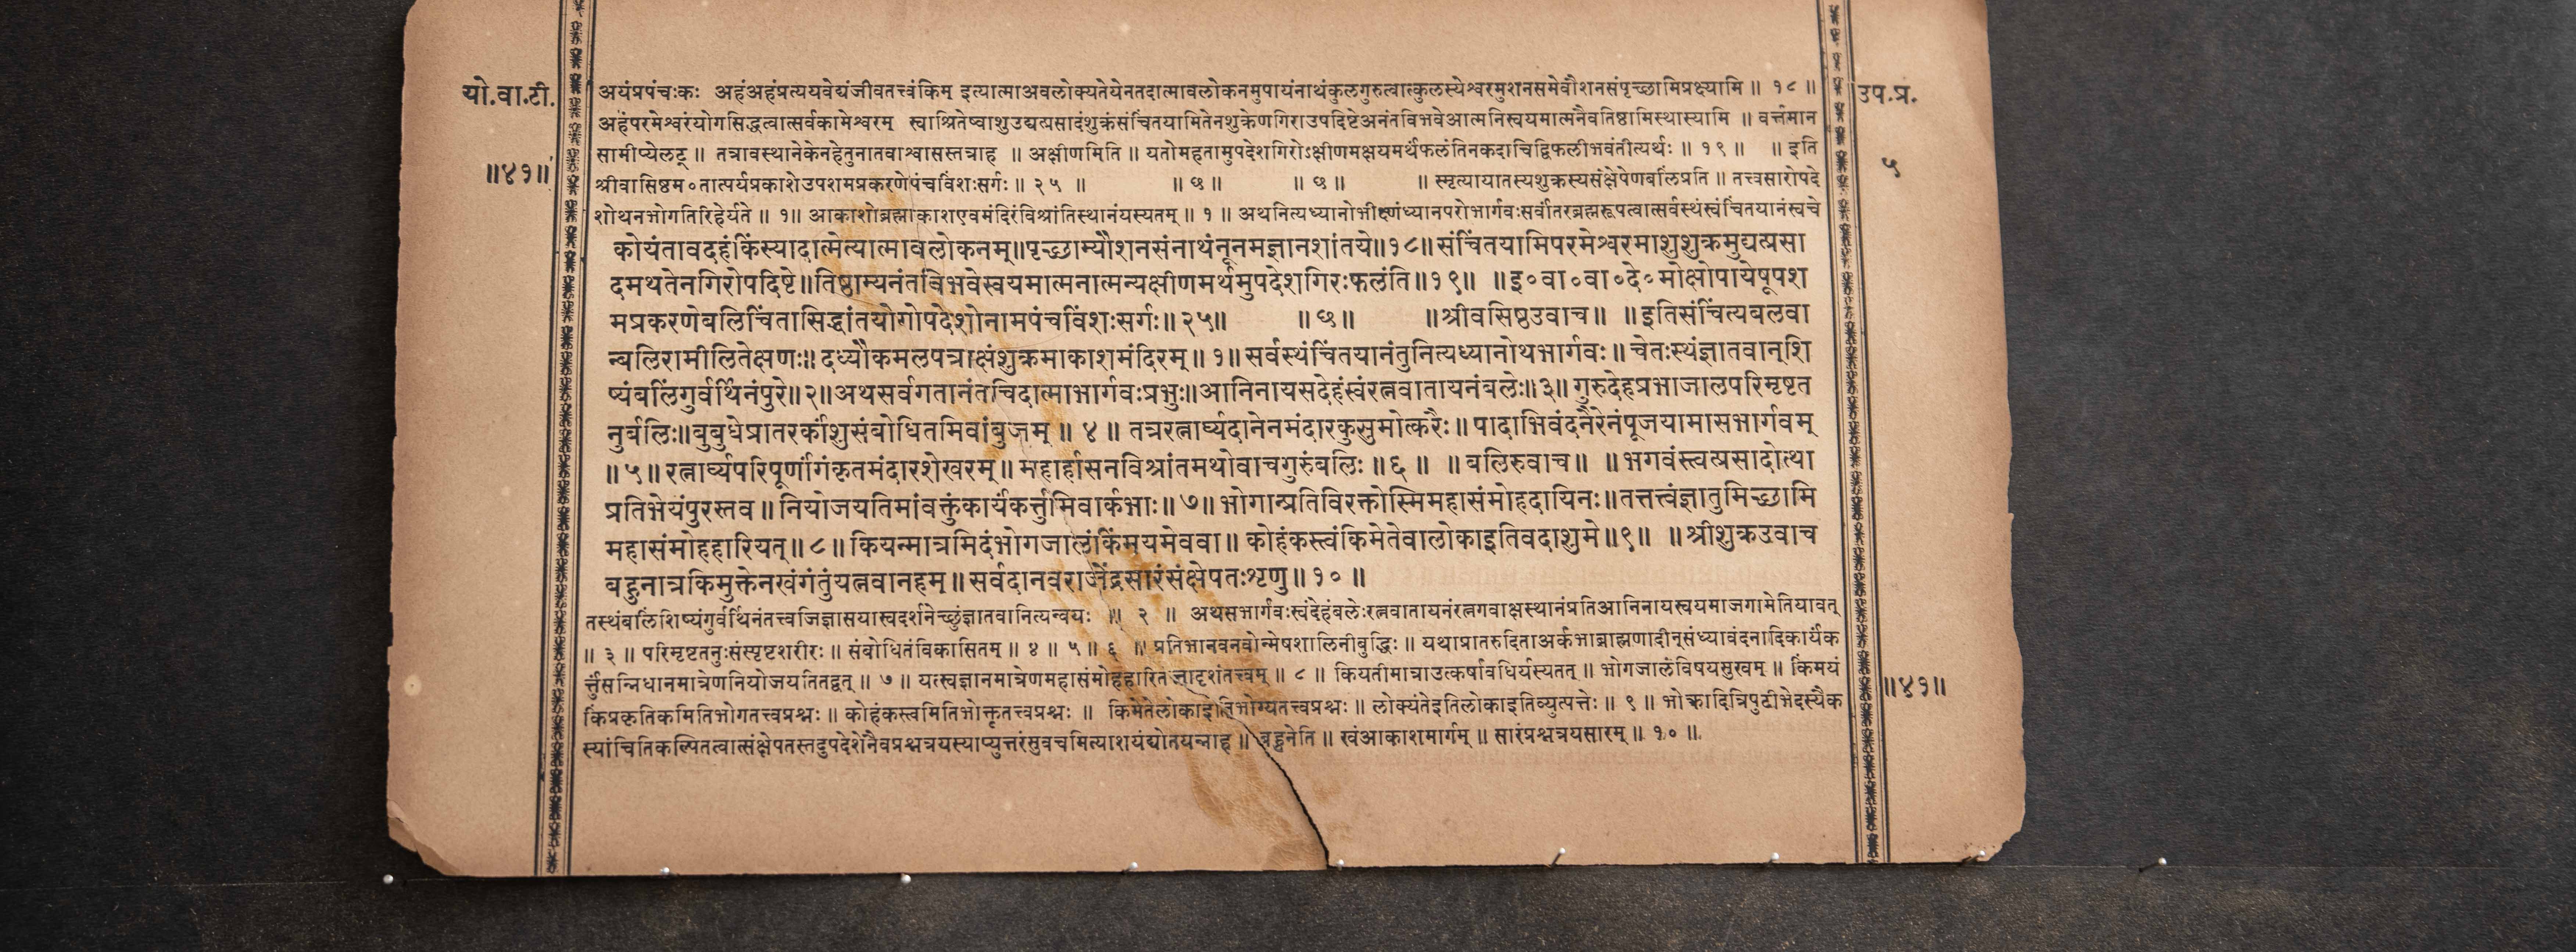 यो.वा.टी.
॥४१॥
अयंप्रपंचःकः अहंअहंप्रत्ययवेद्यंजीवतत्त्वंकिम् इत्यात्माअवलोक्यतेयेनतदात्मावलोकनमुपायंनाथंकुलगुरुत्वात्कुलस्येश्वरमुशनसमेवौशनसंपृच्छामिप्रक्ष्यामि ॥ १८ ॥
अहंपरमेश्वरंयोगसिद्धत्वात्सर्वकामेश्वरम् स्वाश्रितेष्वाशुउद्यत्प्रसादंशुक्रंसंचिंतयामितेनशुक्रेणगिराउपदिष्टेअनंतविभवेआत्मनिस्वयमात्मनैवतिष्ठामिस्थास्यामि ॥ वर्त्तमान
सामीप्येलट् ॥ तत्रावस्थानेकेनहेतुनातवाश्वासस्तत्राह ॥ अक्षीणमिति ॥ यतोमहतामुपदेशगिरोऽक्षीणमक्षयमर्थंफलंतिनकदाचिद्विफलीभवंतीत्यर्थः ॥ १९ ॥ ॥ इति
श्रीवासिष्ठम॰तात्पर्यप्रकाशेउपशमप्रकरणेपंचविंशःसर्गः ॥ २५ ॥ ॥ छ ॥ ॥ छ ॥ ॥ स्मृत्यायातस्यशुक्रस्यसंक्षेपेणबलिंप्रति ॥ तत्त्वसारोपदे
शोथनभोगतिरिहेर्यते ॥ १॥ आकाशोब्रह्माकाशएवमंदिरंविश्रांतिस्थानंयस्यतम् ॥ १ ॥ अथनित्यध्यानोभीक्ष्णंध्यानपरोभार्गवःसर्वांतरब्रह्मरूपत्वात्सर्वस्थंस्वंचिंतयानंस्वचे
कोयंतावदहंकिंस्यादात्मेत्यात्मावलोकनम्॥पृच्छाम्यौशनसंनाथंनूनमज्ञानशांतये॥१८॥संचिंतयामिपरमेश्वरमाशुशुक्रमुद्यत्प्रसा
दमथतेनगिरोपदिष्टे॥तिष्ठाम्यनंतविभवेस्वयमात्मनात्मन्यक्षीणमर्थमुपदेशगिरःफलंति॥१९॥ ॥इ॰वा॰वा॰दे॰मोक्षोपायेषूपश
मप्रकरणेबलिचिंतासिद्धांतयोगोपदेशोनामपंचविंशःसर्गः॥२५॥ ॥छ॥ ॥श्रीवसिष्ठउवाच॥ ॥इतिसंचिंत्यबलवा
न्बलिरामीलितेक्षणः॥दध्यौकमलपत्राक्षंशुक्रमाकाशमंदिरम्॥१॥सर्वस्थंचिंतयानंतुनित्यध्यानोथभार्गवः॥चेतःस्थंज्ञातवान्शि
ष्यंबलिंगुर्वर्थिनंपुरे॥२॥अथसर्वगतानंतचिदात्माभार्गवःप्रभुः॥आनिनायसदेहंस्वंरत्नवातायनंबलेः॥३॥गुरुदेहप्रभाजालपरिमृष्टत
नुर्बलिः॥बुबुधेप्रातरर्कांशुसंबोधितमिवांबुजम् ॥ ४ ॥ तत्ररत्नार्घ्यदानेनमंदारकुसुमोत्करैः॥पादाभिवंदनैरेनंपूजयामासभार्गवम्
॥५॥रत्नार्घ्यपरिपूर्णांगंकृतमंदारशेखरम्॥महार्हासनविश्रांतमथोवाचगुरुंबलिः॥६॥ ॥बलिरुवाच॥ ॥भगवंस्त्वत्प्रसादोत्था
प्रतिभेयंपुरस्तव॥नियोजयतिमांवक्तुंकार्यंकर्त्तुमिवार्कभाः॥७॥भोगान्प्रतिविरक्तोस्मिमहासंमोहदायिनः॥तत्तत्त्वंज्ञातुमिच्छामि
महासंमोहहारियत्॥८॥कियन्मात्रमिदंभोगजालंकिंमयमेववा॥कोहंकस्त्वंकिमेतेवालोकाइतिवदाशुमे॥९॥ ॥श्रीशुक्रउवाच
बहुनात्रकिमुक्तेनखंगंतुंयत्नवानहम्॥सर्वदानवराजेंद्रसारंसंक्षेपतःशृणु॥१०॥
तस्थंबलिंशिष्यंगुर्वर्थिनंतत्त्वजिज्ञासयास्वदर्शनेच्छुंज्ञातवानित्यन्वयः ॥ २ ॥ अथसभार्गवःस्वंदेहंबलेःरत्नवातायनंरत्नगवाक्षस्थानंप्रतिआनिनायस्वयमाजगामेतियावत्
॥ ३ ॥ परिमृष्टतनुःसंस्पृष्टशरीरः ॥ संबोधितंविकासितम् ॥ ४ ॥ ५ ॥ ६ ॥ प्रतिभानवनवोन्मेषशालिनीबुद्धिः ॥ यथाप्रातरुदिताअर्कभाब्राह्मणादीन्संध्यावंदनादिकार्यंक
र्त्तुंसन्निधानमात्रेणनियोजयतितद्वत् ॥ ७ ॥ यत्स्वज्ञानमात्रेणमहासंमोहहारितत्तादृशंतत्त्वम् ॥ ८ ॥ कियतीमात्राउत्कर्षावधिर्यस्यतत् ॥ भोगजालंविषयसुखम् ॥ किंमयं
किंप्रकृतिकमितिभोगतत्त्वप्रश्नः ॥ कोहंकस्त्वमितिभोक्तृतत्त्वप्रश्नः ॥ किमेतेलोकाइतिभोग्यतत्त्वप्रश्नः ॥ लोक्यंतेइतिलोकाइतिव्युत्पत्तेः ॥ ९ ॥ भोक्त्रादित्रिपुटीभेदस्यैक
स्यांचितिकल्पितत्वात्संक्षेपतस्तदुपदेशेनैवप्रश्नत्रयस्याप्युत्तरंसुवचमित्याशयंद्योतयन्नाह ॥ बहुनेति ॥ खंआकाशमार्गम् ॥ सारंप्रश्नत्रयसारम् ॥ १० ॥
उप.प्र.
५
॥४१॥